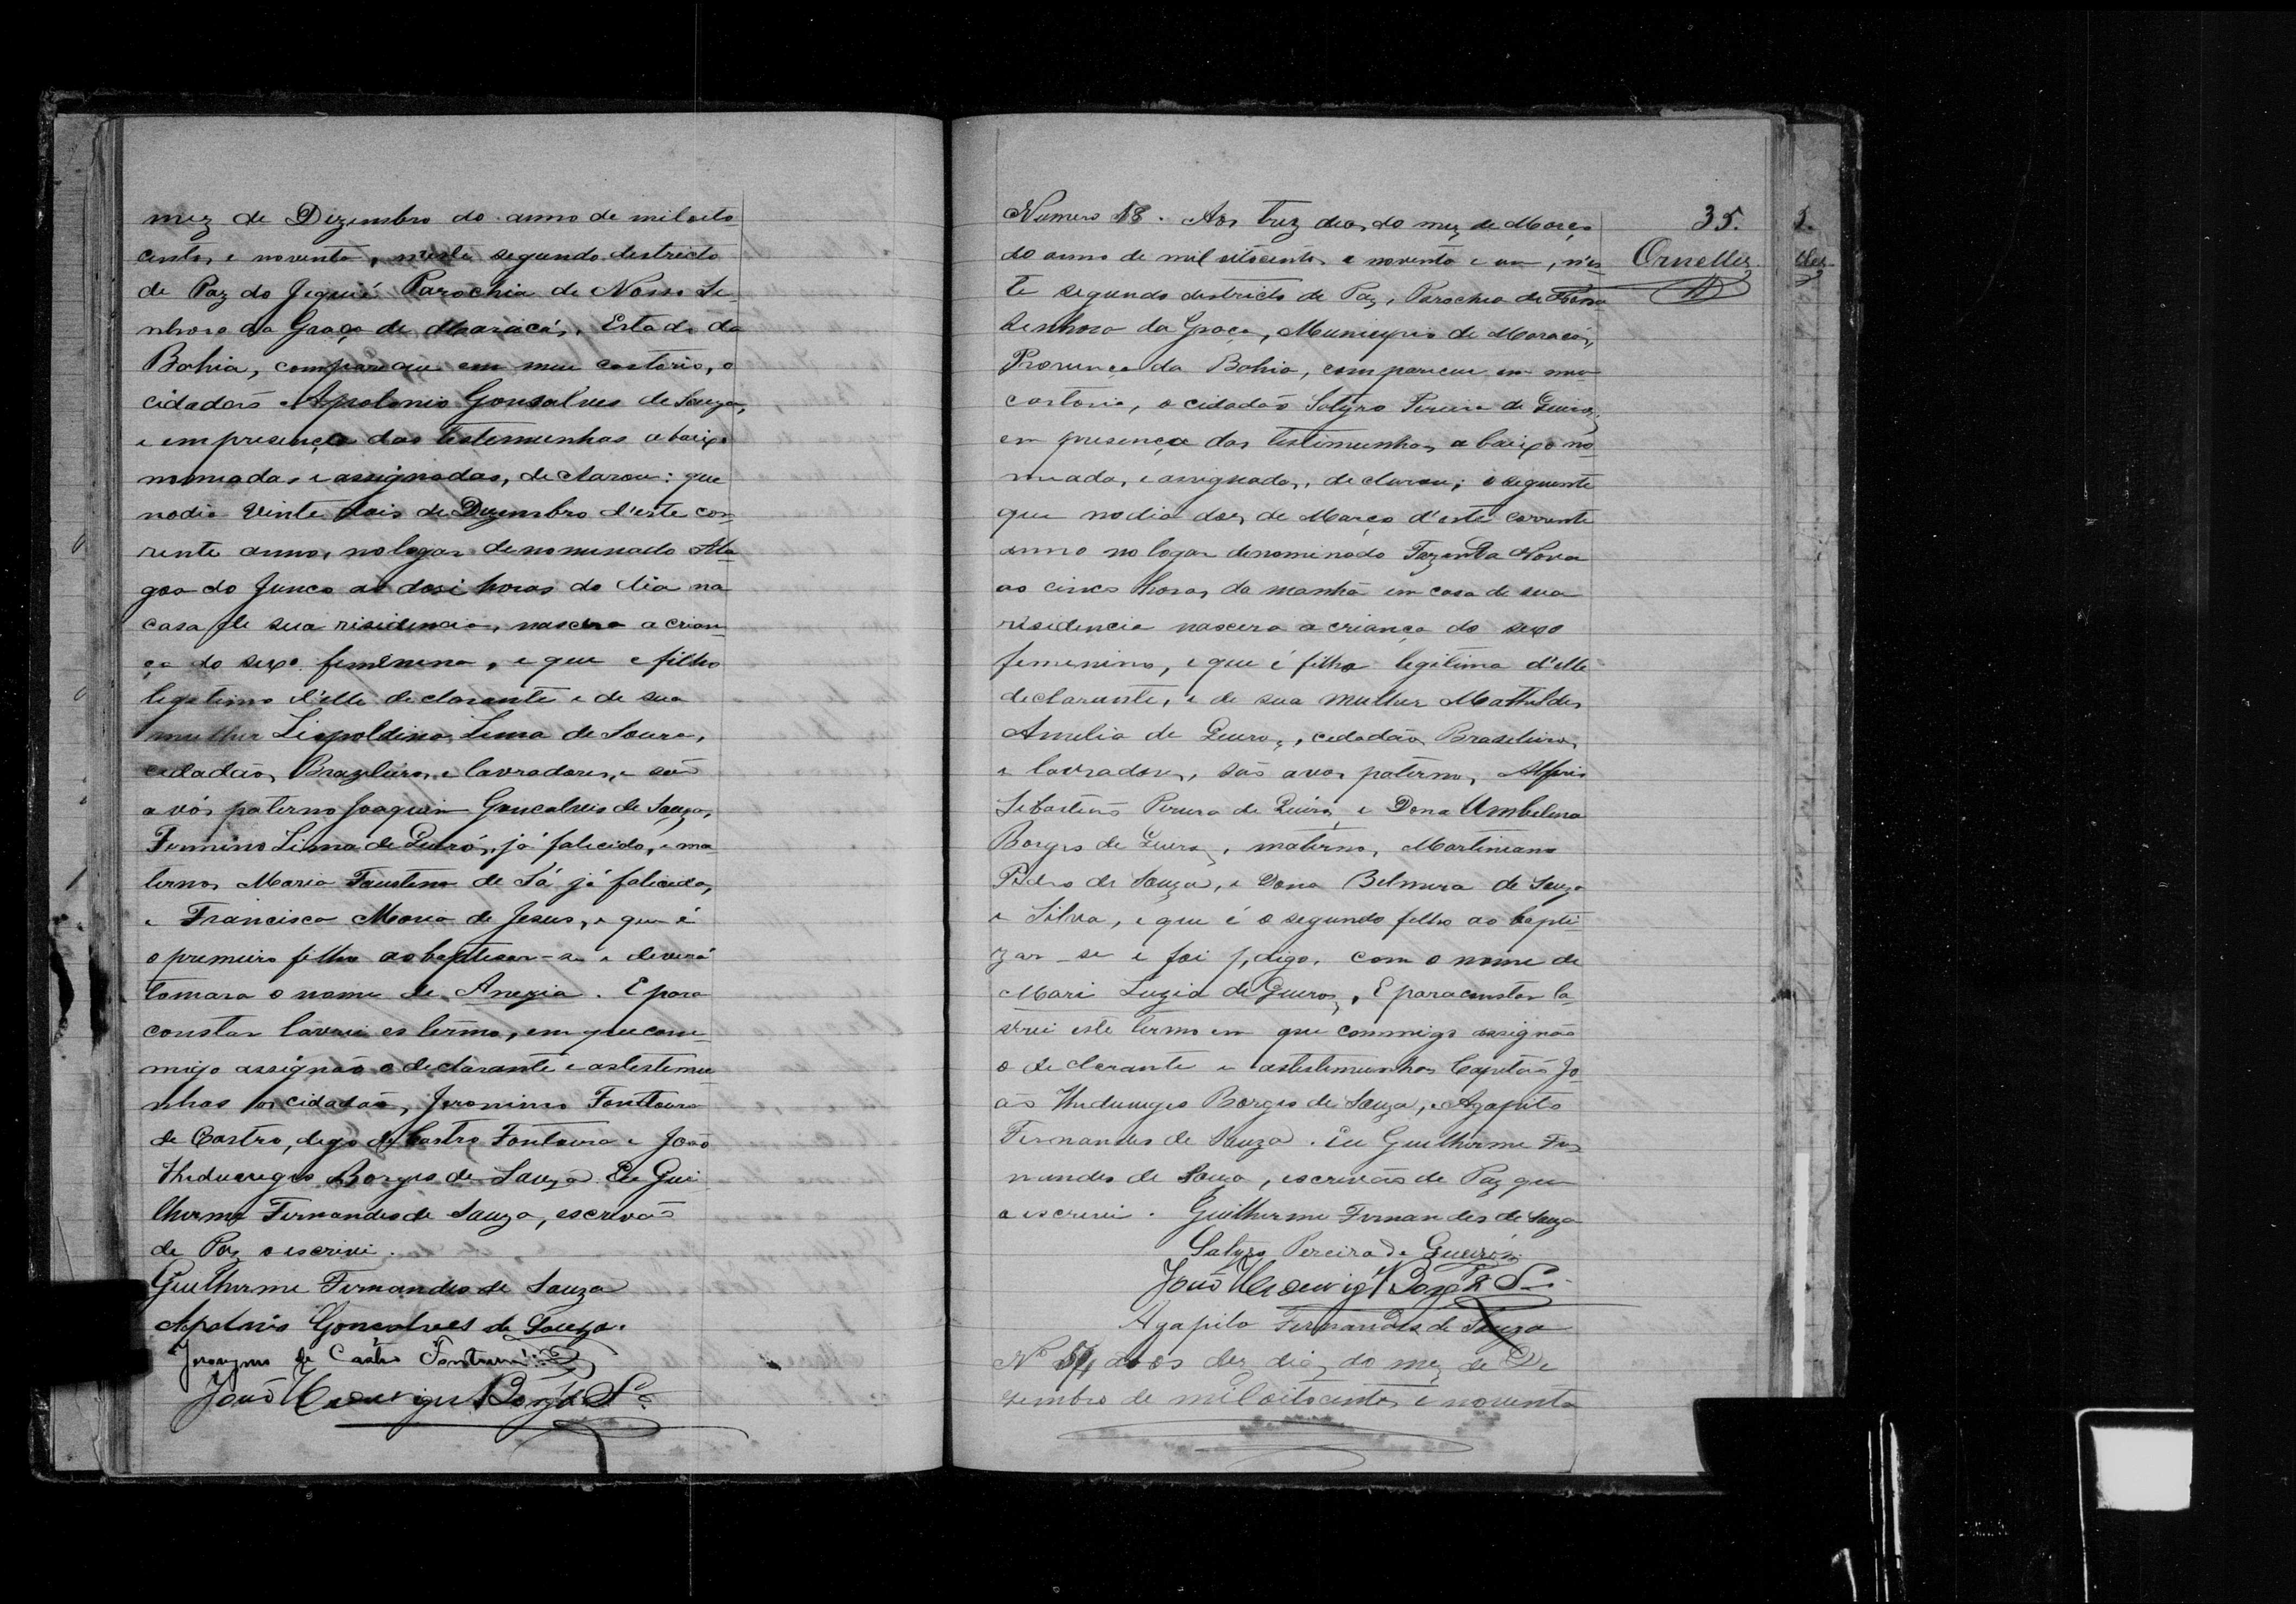 mez de Dezembro do anno de miloito
centos e noventa, neste segundo destricto
de Paz do Jequié Parochia de Nossa Se-
nhora da Graça de Maracás, Estado da
Bahia, compareceu em meu cartorio, o
cidadão Apolonio Gonsalves de Souza,
e em presença das testemunhas abaixo
nomiadas e assignadas, declarou: que
nodia vinte dois de Dezembro d'este cor-
rente anno, nologar denominado Ala-
goa do Junco as dose horas do dia na
casa de sua risidencia, nascera a crian-
ça do sexo feminino, e que e filho
legitimo d'elle declarante e de sua
mulher Liopoldina Lima de Soura,
cidadãos Brazileiros e lavradores, e são
avós paterno Joaquim Goncalves de Souza,
Firmino Lima de Queirós, já falicido, e ma-
ternos Maria Faustina de Sá já falicida,
e Francisca Maria de Jesus, e que é
o premeiro filho ao baptisar-se e deverá
tomara o nome de Anezia. E para
constar lavrei es termo, em que com-
migo assignão o declarante e astestemu-
nhas os cidadão, Jeronimo Fonttoura
de Castro, digo de Castro Fontoura e João
Heduviges Borges de Souza Eu Gui-
lherme Fernandes de Souza, escrivão
de Paz o escrivi.
Guilherme Fernandes de Souza
Apolonio Goncalves de Souza.
Jeronymo de Castro Fontoura
João Hedeviges Borges de Sa
Numero 18. Aos trez dias do mez de Março
do anno de mil oitocentos e noventa e um, n'es-
te segundo districto de Paz, Parochia de Nossa
Senhora da Graça, Municipio de Maracás,
Provinça da Bahia, compareceu em meu
cartorio, o cidadão Satyro Pereira de Queiros,
em presença das testimunhas abaixo no-
meada, e assignada, declarou; o seguente
que nodia dois de Março d'este corrente
anno no logar denominado Fazenda Nova
as cinco horas da manhã em casa de sua
risidencia nascera a criança do sexo
feminino, e que é filha legitima d'elle
declarante, e de sua mulher Mathildes
Amelia de Queiroz, cidadãos Brasileiros
e lavradores, são avos paternos, Alferis
Sebastião Pereira de Queiros e Dona Umbelina
Borges de Queiroz, maternos, Martiniano
Pedro de Souza, e Dona Belmira de Souza
e Silva, e que é o segundo filho ao bapti
zar-se e foi p, digo, com o nome de
Mari Luzia de Queiros, E para constar la-
vrei este termo em que commigo assignão
o declarante e astestimunhas Capitão Jo-
ão Heduviges Borges de Souza, e Agapito
Fernandes de Souza. Eu Guilherme Fer
nandes de Souza, escrivão de Paz que
o escrivi. Guilherme Fernandes de Souza
Satyro Pereira de Queirós
João Hedewiges Borges de Sa
Agapito Fernandes de Souza
No aos dez dias do mez de De
zembro de miloitocentos e noventa
35.
Ornellez